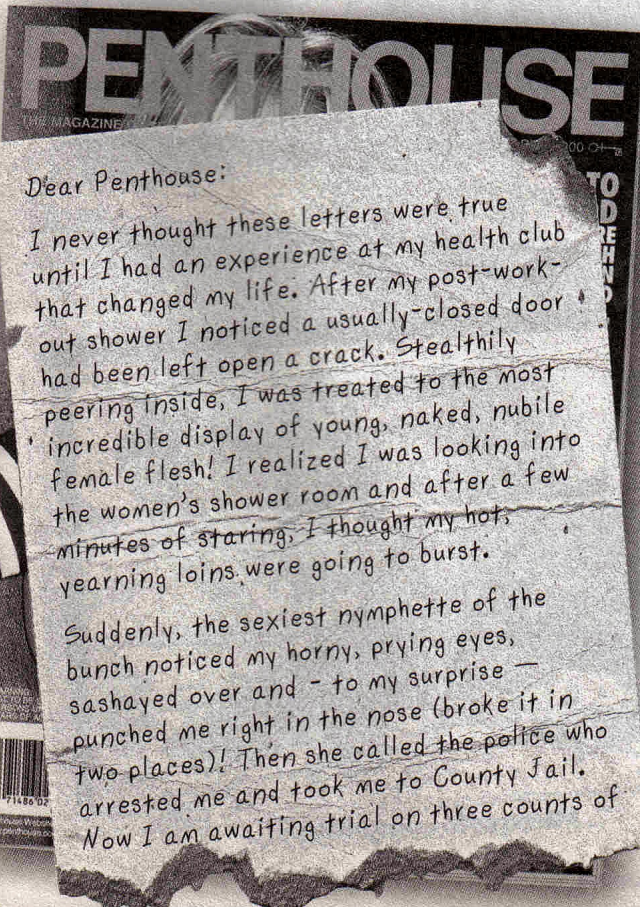 PENTHOUSE
THE MAGAZINE
Dear Penthouse:
I never thought these letters were true
until I had an experience at my health club
that changed my life. After my post-work-
out shower I noticed a usually-closed door
had been left open a crack. Stealthily
peering inside, I was treated to the most
incredible display of young, naked, nubile
female flesh! I realized I was looking into
the women's shower room and after a few
minutes of staring, I thought my hot,
yearning loins were going to burst.
Suddenly, the sexiest nymphette of the
bunch noticed my horny, prying eyes,
sashayed over and - to my surprise —
punched me right in the nose (broke it in
two places)! Then she called the police who
arrested me and took me to County Jail.
Now I am awaiting trial on three counts of
71486 02